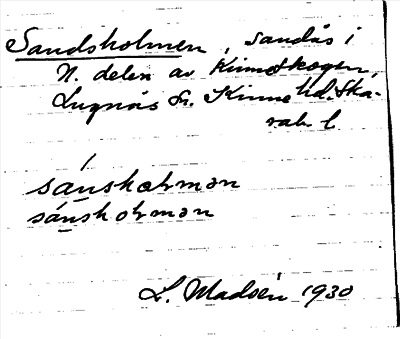 Sandsholmen, sandås i
N. delen av Kinneskogen,
Lugnås sn. Kinne hd. Ska-
rab. l.
sánsholmən
sánsholmən
L. Madsén 1930